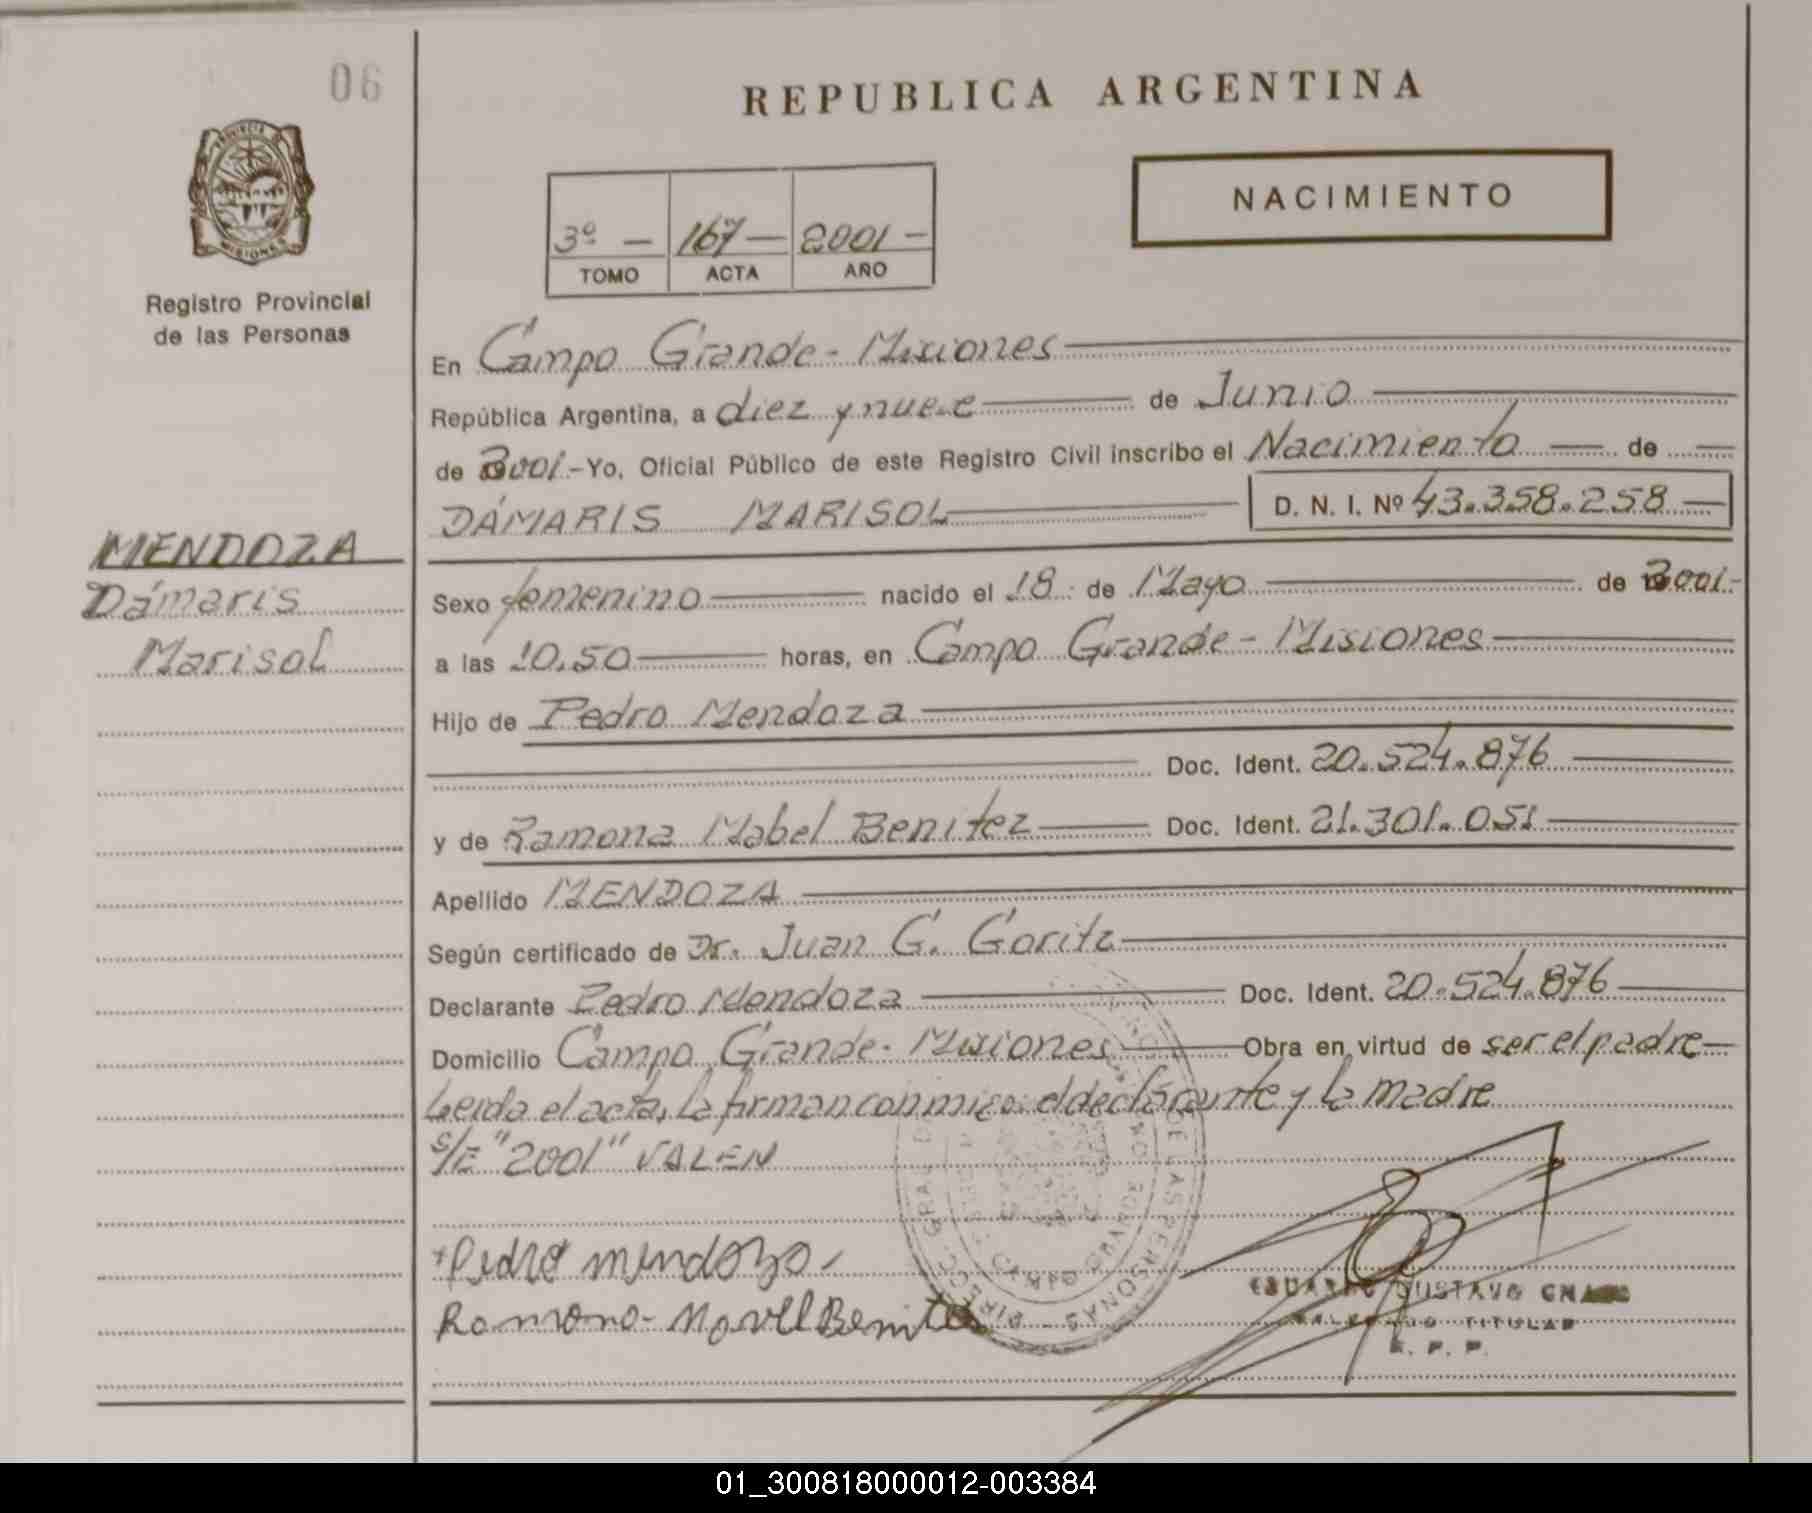 06
REPUBLICA ARGENTINA
PROVINCIA DE
MISIONES
Registro Provincial
de las Personas
3º - 167 - 2001 -
TOMO ACTA AÑO
NACIMIENTO
En Campo Grande - Misiones
República Argentina, a diez y nueve de Junio
de 2001.- Yo, Oficial Público de este Registro Civil inscribo el Nacimiento de
DÁMARIS MARISOL D. N. I. Nº 43.358.258
MENDOZA
Dámaris
Marisol
Sexo femenino nacido el 18 de Mayo de 2001.-
a las 10.50 horas, en Campo Grande - Misiones
Hijo de Pedro Mendoza
Doc. Ident. 20.524.876
y de Ramona Mabel Benitez Doc. Ident. 21.301.051
Apellido MENDOZA
Según certificado de Dr. Juan G. Goritz
Declarante Pedro Mendoza Doc. Ident. 20.524.876
Domicilio Campo Grande - Misiones Obra en virtud de ser el padre
Leida el acta, la firman conmigo: el declarante y la madre
S/E "2001" VALEN
Pedro Mendozo
Romono Movel Benitez
GUSTAVO
TITULAR
R. P. P.
DE LAS PERSONAS
01_300818000012-003384